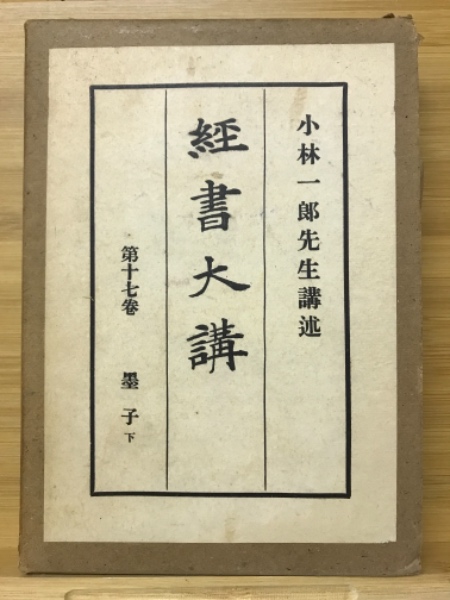 小林一郎先生講述
經書大講
第十七卷　墨子下